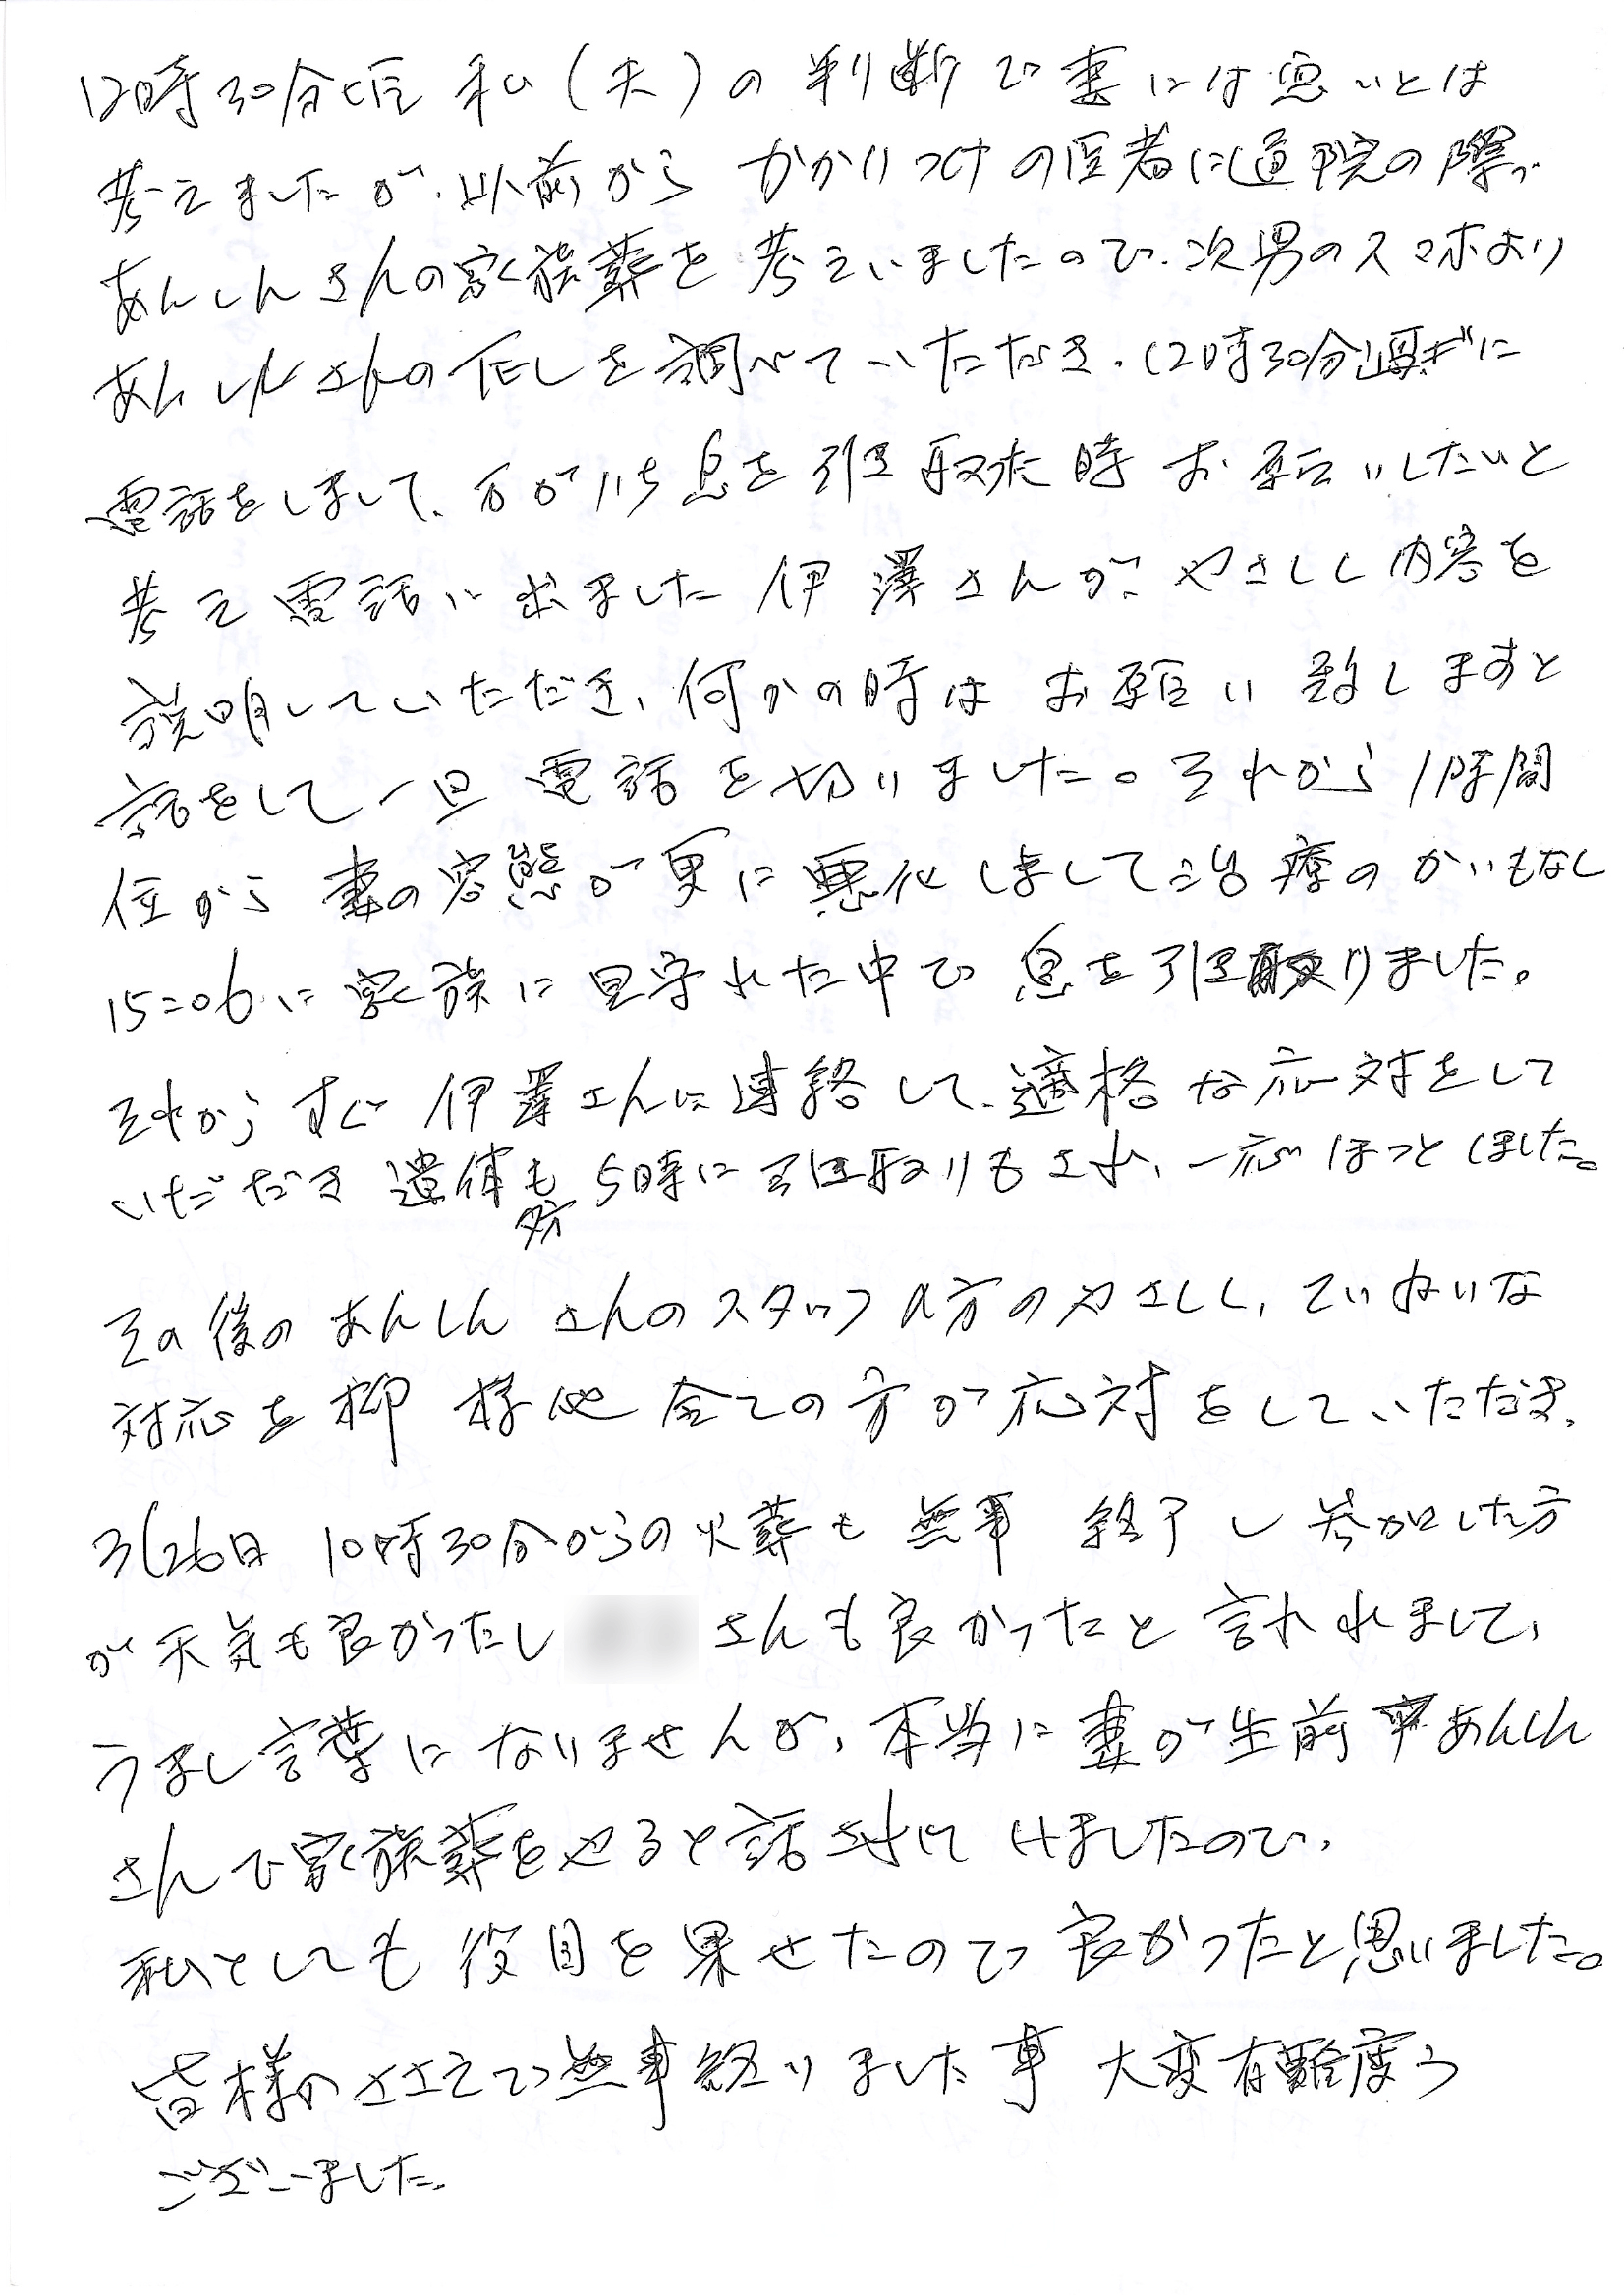 12時30分頃 私(夫)の判断で妻には悪いとは
考えましたが、以前から かかりつけの医者に通院の際、
あんしんさんの家族葬を考えいましたので、次男のスマホより
あんしんさんのTELを調べていただき、12時30分過ぎに
電話をしまして、万がいち息を引き取た時 お願いしたいと
考え 電話に出ました 伊澤さんが、やさしく内容を
説明していただき、何かの時は お願い 致しますと
話をして 一旦 電話を切りました。それから 1時間
位から 妻の容態が更に悪化しまして治療のかいもなく
15=06に家族に見守れた中で 息を引き取りました。
それからすぐ 伊澤さんに連絡して、適格な応対をして
いただだき 遺体も 5時に引き取りもされ、一応ほっとしました。
その後の あんしん さんのスタッフの方のやさしく、ていねいな
対応を 柳 様他 全ての方が応対をしていただき、
3/26日 10時30分からの火葬も 無事 終了し 参加した方
が天気も良かったし さんも良かったと 言われまして、
うまく言葉になりませんが、本当に妻が生前 あんしん
さんで家族葬をやると話されて いましたので、
私としても 役目を果せたので 良かったと思いました。
皆様のささえで無事終りました事 大変有難度う
ございました。